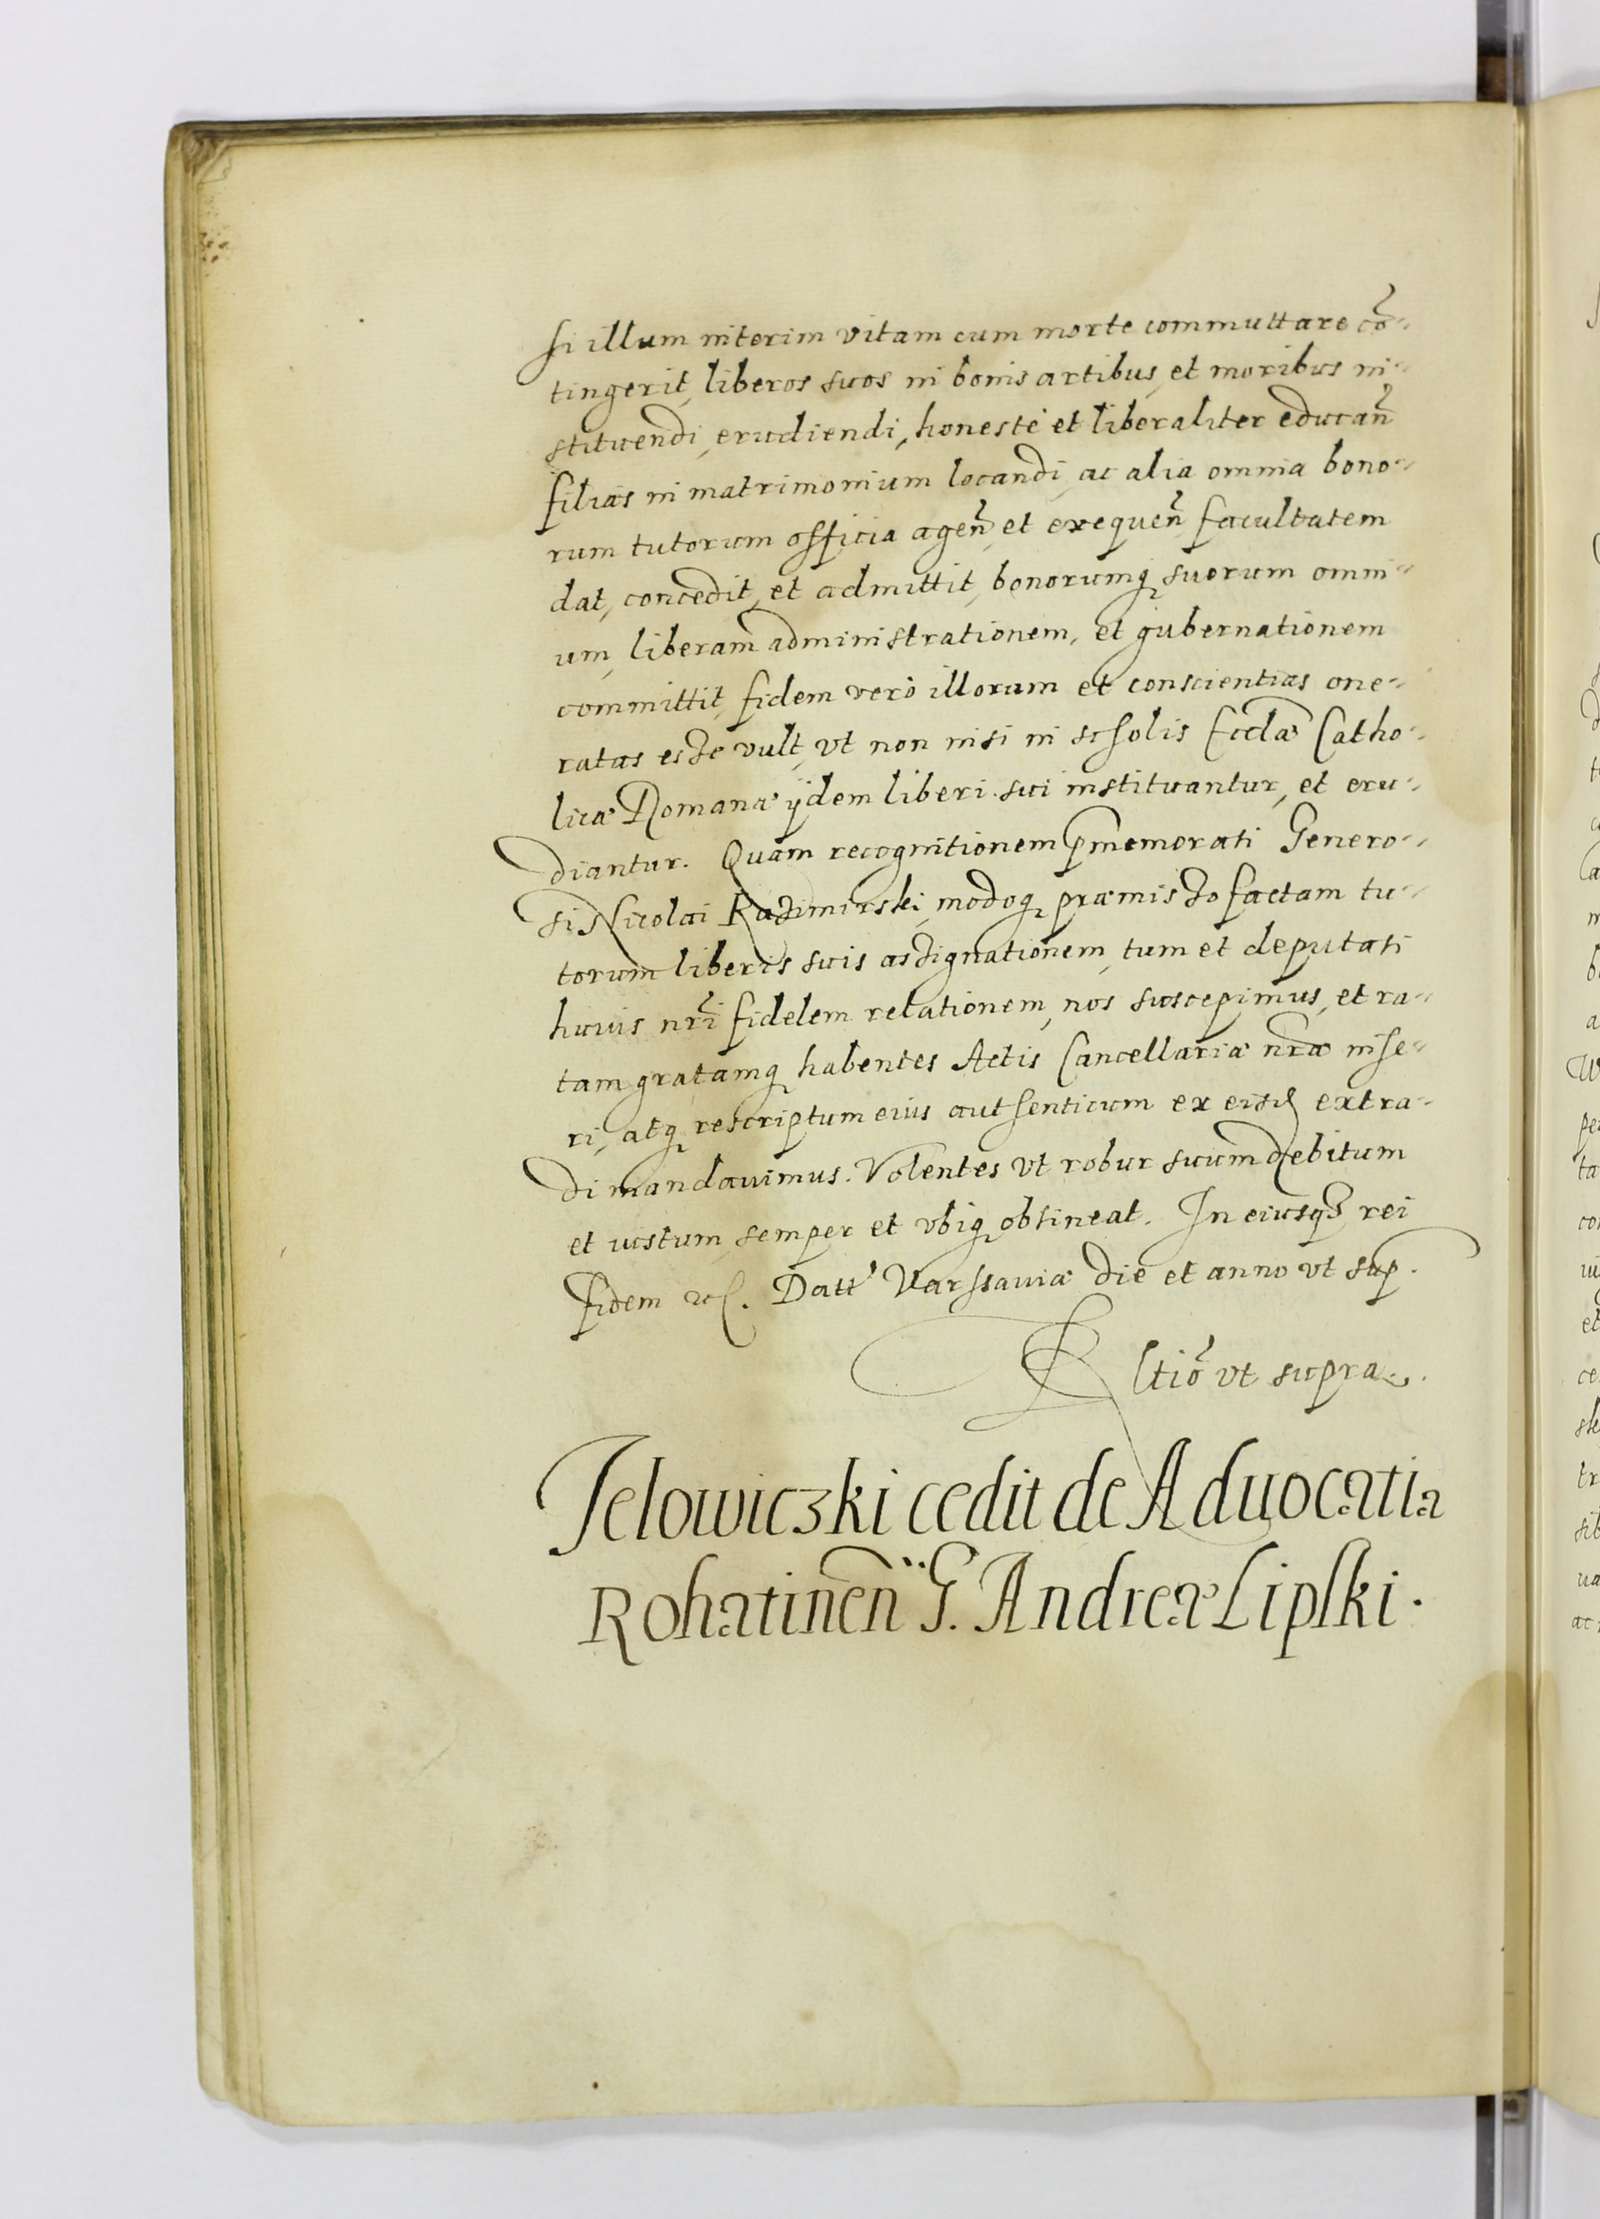 si illum interim vitam cum morte commuttare cõ-
tingerit, liberos suos in bonis artibus, et moribus in-
stituendi, erudiendi, honestè et liberaliter educan̄
filias in matrimonium locandi, ac alia omnia bono-
rum tutorum officia agen̄, et exequen̄, facultatem
dat, concedit, et admittit, bonorumq suorum omni-
um, liberam administrationem, et gubernationem
committit, fidem verò illorum et conscientias one-
ratas esse vult, vt non nisi in scholis Eccłæ Catho-
licæ Romanæ ijdem liberi sui instituantur, et eru-
diantur. Quam recognitionem pmemorati Genero-
si Nicolai Kazimirski, modoq præmisso factam tu-
torum liberis suis assignationem, tum et deputati
huius nr̃i fidelem relationem, nos suscepimus, et ra-
tam gratamq habentes Actis Cancellariæ nræ inse-
ri, atq rescriptum eius authenticum ex eisd extra-
di mandauimus. Volentes vt robur suum debitum
et iustum semper et vbiq obtineat. In eiusq3 rei
fidem &c. Datt Varssauiæ die et anno vt sup.
Rltiõ vt supra.
Jelowiczki cedit de Aduocatia
Rohatinen̄ G. Andreæ Lipski.